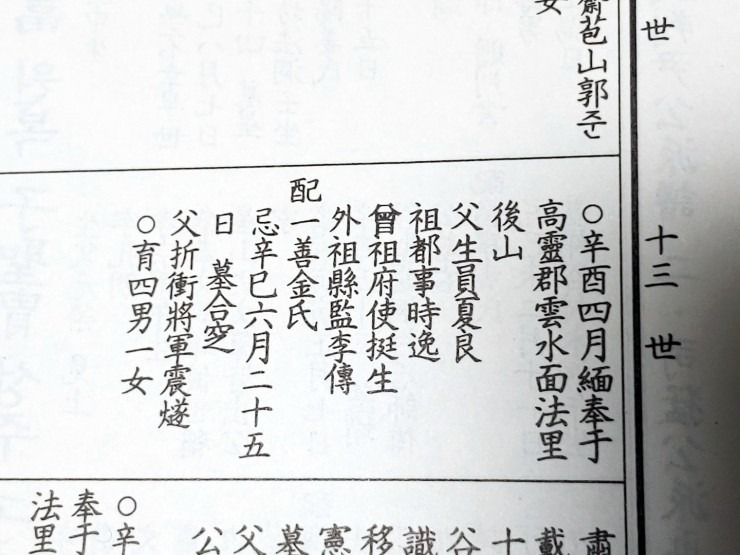 世
齋苞山郭준
女
十三世
○辛酉四月緬奉于
高靈郡雲水面法里
後山
父生員夏良
祖都事時逸
曾祖府使挺生
外祖縣監李傳
配一善金氏
忌辛巳六月二十五
日 墓合窆
父折衝將軍震燧
○育四男一女
肅
載
十
谷
識
移
憲
墓
父
公
○辛
奉于
法里